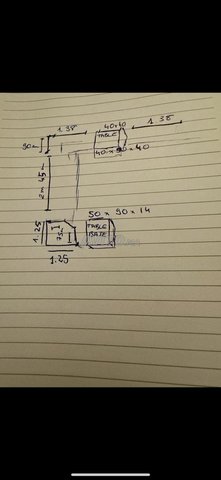 1.38
40x40
1.38
90m
TABLE
40 x 90 x 40
2m 45
50 x 90 x 14
1.25
TABLE
BASE
1.25